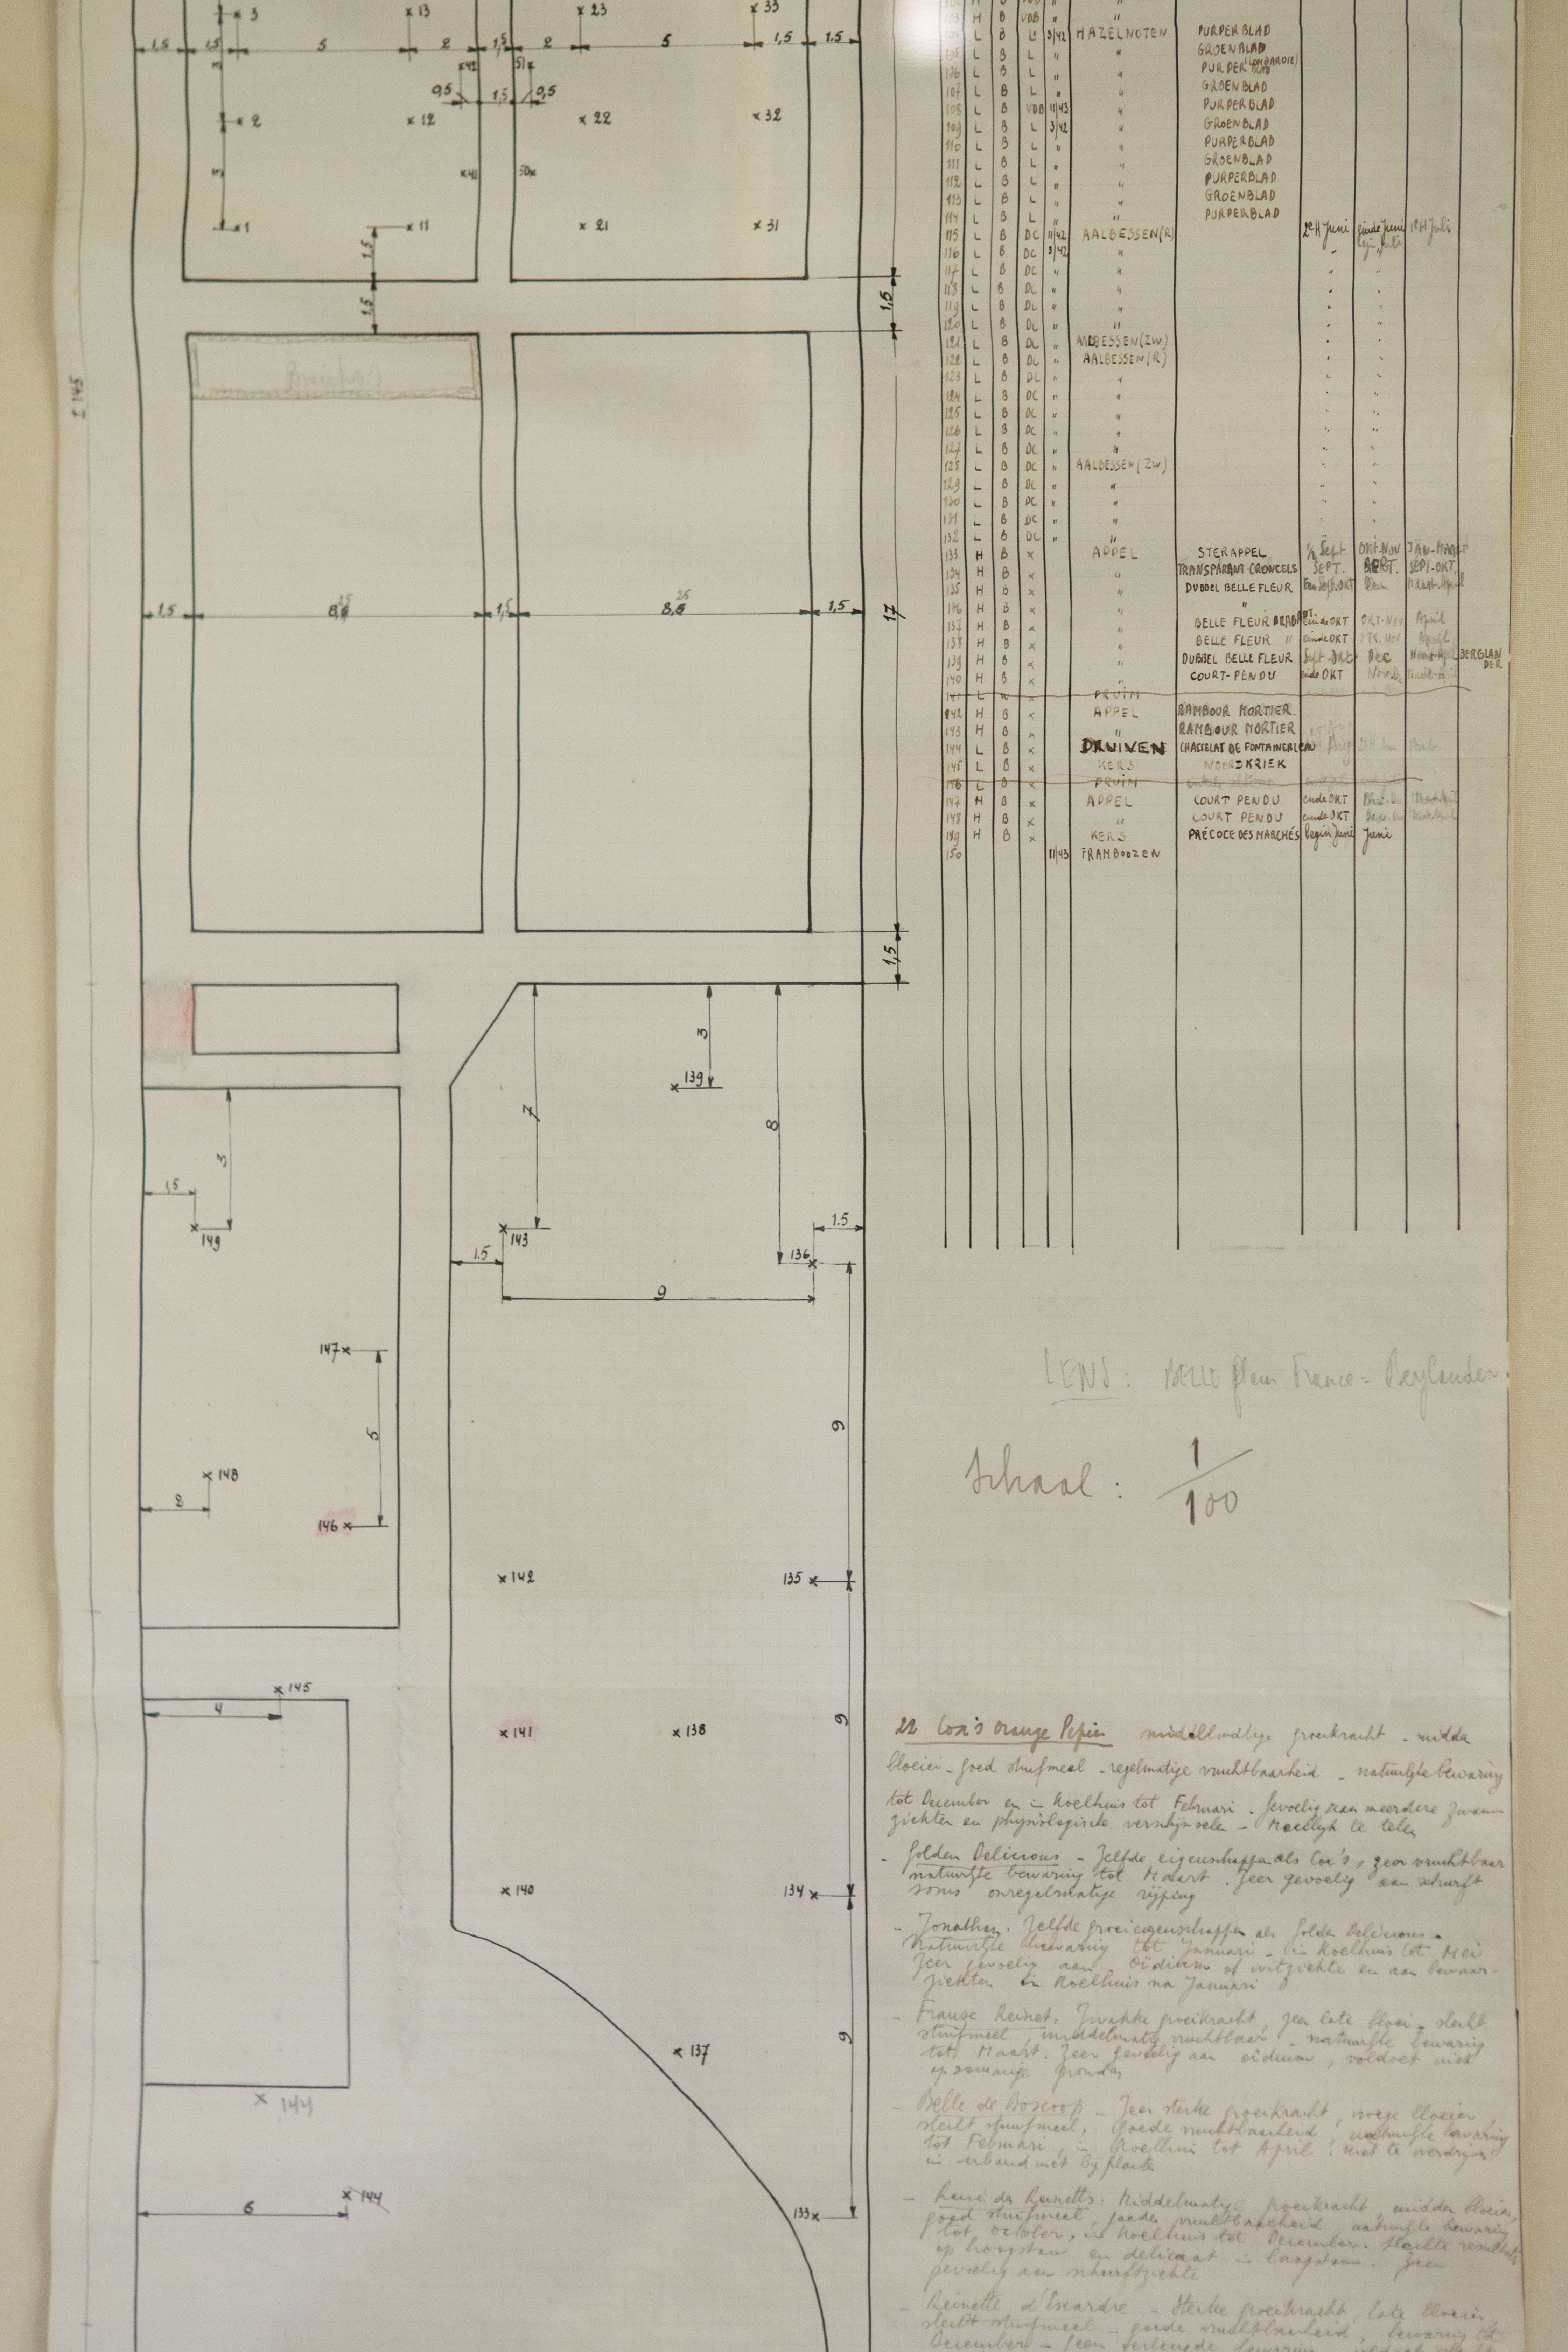 3 13 23 33
1,5 1,5 5 2 1,5 2 5 1,5 1.5
3 42 51
0,5 1,5 0,5
2 12 22 32
3 41 50
1 11 21 31
1,5
1,5 1,5
± 145
1,5 8,5 25 1,5 8,5 25 1,5 17
1,5
3
139
7
8
3
1,5
149
143
1.5
136
1.5
9
147
5
9
148
2
146
142
135
145
4
141
138
9
140
134
137
9
144
6
144
133
H B VDB "
103 H B VDB " "
L B L 3/42 HAZELNOTEN PURPERBLAD
105 L B L " " GROENBLAD
106 L B L " " PURPERBLAD (LOMBARDIE)
107 L B L " " GROENBLAD
108 L B VDB 11/43 " PURPERBLAD
109 L B L 3/42 " GROENBLAD
110 L B L " " PURPERBLAD
111 L B L " " GROENBLAD
112 L B L " " PURPERBLAD
113 L B L " " GROENBLAD
114 L B L " " PURPERBLAD
115 L B DC 11/42 AALBESSEN(R) 2e H Juni einde Juni 1e H Juli
116 L B DC 3/42 "
117 L B DC " "
118 L B DC " "
119 L B DC " "
120 L B DC " "
121 L B DC " AALBESSEN(ZW)
122 L B DC " AALBESSEN(R)
123 L B DC " "
124 L B DC " "
125 L B DC " "
126 L B DC " "
127 L B DC " "
128 L B DC " AALBESSEN(ZW)
129 L B DC " "
130 L B DC " "
131 L B DC " "
132 L B DC " "
133 H B x APPEL STERAPPEL 1/2 Sept OKT-NOV JAN-MAART
134 H B x " TRANSPARANT CRONCELS SEPT. SEPT. SEPT-OKT.
135 H B x " DUBBEL BELLE FLEUR Dec Maart-April
136 H B x " "
137 H B x " BELLE FLEUR BRABANT einde OKT OKT-NOV April
138 H B x " BELLE FLEUR " einde OKT OKT-NOV April
139 H B x " DUBBEL BELLE FLEUR Sept-Okt Dec Maart-April BERGLANDER
140 H B x " COURT-PENDU einde OKT Nov-De Maart-April
141 L x PRUIM
142 H B x APPEL RAMBOUR MORTIER
143 H B x " RAMBOUR MORTIER
144 L B x DRUIVEN CHASSELAS DE FONTAINEBLEAU Aug
145 L B x KERS NOORDKRIEK
146 L B x PRUIM
147 H B x APPEL COURT PENDU einde OKT
148 H B x " COURT PENDU einde OKT
149 H B x KERS PRÉCOCE DES MARCHÉS begin Juni Juni
150 11/43 FRAMBOOZEN
LENS: BELLE fleur France = Berglander.
Schaal : 1/100
22 Cox's Orange Pepin middelmatige groeikracht - midda
bloeier - goed stuifmeel - regelmatige vruchtbaarheid - natuurlijke bewaring
tot December en in koelhuis tot Februari. Gevoelig aan meerdere zwam
ziekten en physiologische verschijnselen - Moeilijk te telen
- Golden Delicious - Zelfde eigenschappen als Cox's, zeer vruchtbaar
natuurlijke bewaring tot Maart. Zeer gevoelig aan schurft
soms onregelmatige rijping
- Jonathan. Zelfde groeieigenschappen als Golden Delicious.
Natuurlijke bewaring tot Januari - in Koelhuis tot Mei
Zeer gevoelig aan oïdium of witziekte en aan bewaar-
ziekten in Koelhuis na Januari
- Franse Reinet: Zwakke groeikracht, zeer late bloei - slecht
stuifmeel, middelmatig vruchtbaar - natuurlijke bewaring
tot Maart. Zeer gevoelig aan oïdium, voldoet niet
op sommige gronden
- Belle de Boscoop - Zeer sterke groeikracht, vroege bloeier,
slecht stuifmeel, Goede vruchtbaarheid, natuurlijke bewaring
tot Februari, in Koelhuis tot April! niet te overdrijven
in verband met bijplante
- Reine des Reinettes: Middelmatige groeikracht, midden bloeier,
goed stuifmeel, goede vruchtbaarheid, natuurlijke bewaring
tot october, in Koelhuis tot December. Slechte resultaten
op hoogstam en delicaat in laagstam. Zeer
gevoelig aan schurftziekte
- Reinette d'Escardre - Sterke groeikracht, late bloeier,
slecht stuifmeel - goede vruchtbaarheid, bewaring tot
December - Geen verlengde bewaring